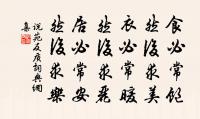 食必常飽
然後求美
衣必常暖
然後求麗
居必常安
然後求樂
說苑反質詞典網
集